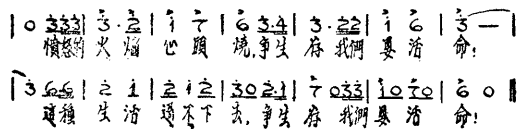 | 0 3 3 3 | 3 · 2 | 1 7 | 6 3·4 | 3 · 2 2 | 1 6 | 3 — |
憤怒的火焰 心頭 燒，爭生 存 我們 要 活 命！
| 3 6 6 | 2 1 | 2 1 2 | 3 0 2·1 | 7 0 3 3 | 1 0 7 0 | 6 0 ‖
這種 生活 過不下 去，爭生 存 我們 要 活 命！